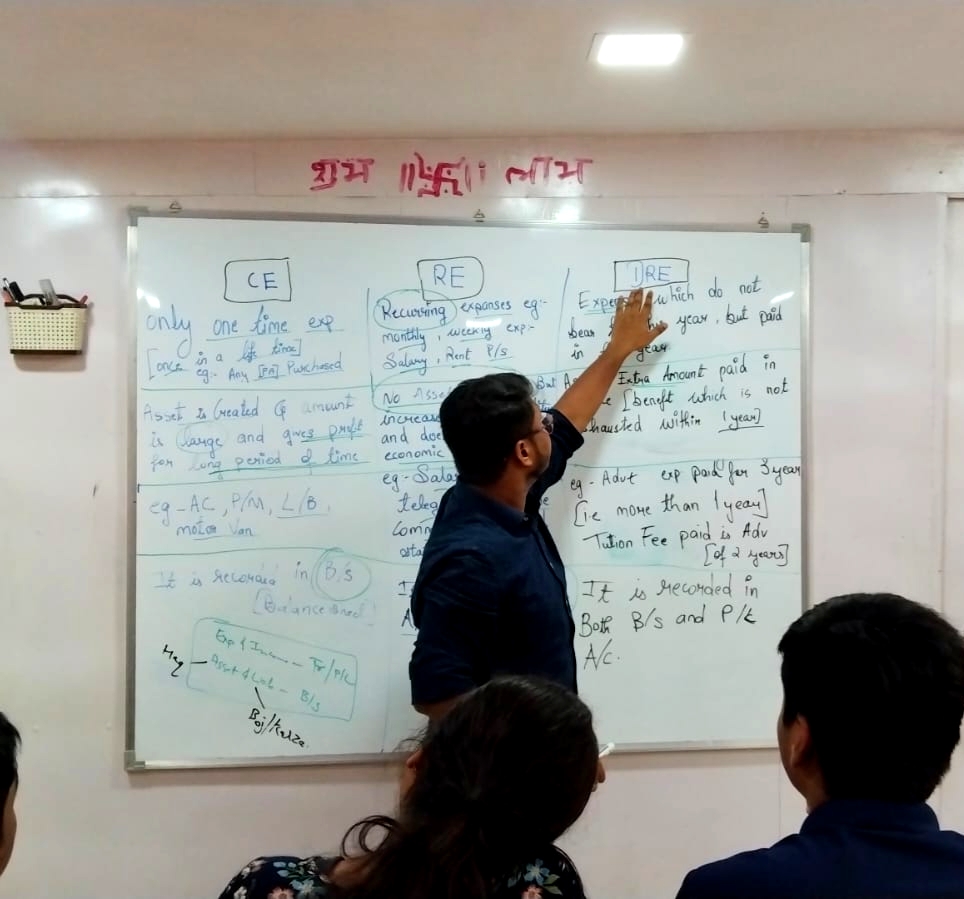 शुभ ॥卐॥ लाभ
CE
only one time exp
[once in a life time]
eg:- Any [FA] Purchased
Asset is Created & amount
is large and gives profit
for long period of time
eg - AC, P/M, L/B,
motor Van
It is recorded in B/s
[Balance Sheet]
Exp & Income - Tr/P/L
Asset & Liab - B/s
Haq
Boj/Karza
RE
Recurring expanses eg:-
monthly, weekly exp:-
Salary, Rent P/s
No Asse
But
increase
and doe
economic
eg:- Sala
teleg
Comm
DRE
Expen which do not
bear year, but paid
in year
Extra Amount paid in
[benefit which is not
hausted within 1 year]
eg - Advt exp paid for 3 year
[i.e more than 1 year]
Tution Fee paid is Adv
[of 2 years]
It is recorded in
Both B/s and P/L
A/c.